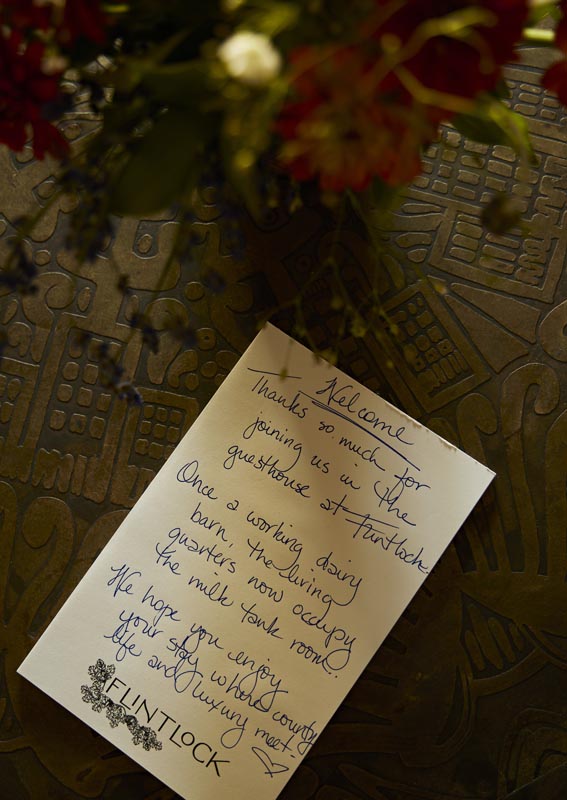 Welcome
Thanks so much for
joining us in the
guesthouse at Flintlock.
Once a working dairy
barn, the living
quarters now occupy
the milk tank room.
We hope you enjoy
your stay where country
life and luxury meet.
FLINTLOCK